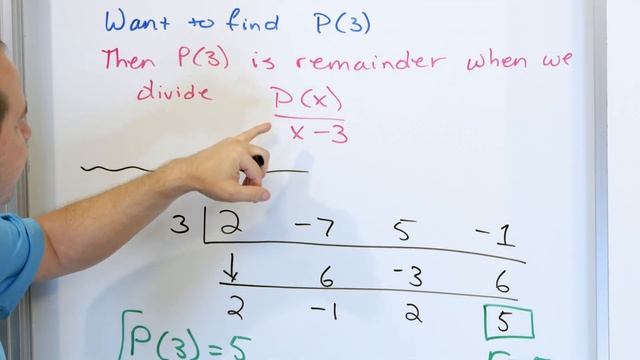 Want to find P(3)
Then P(3) is remainder when we
divide P(x)
x - 3
3 2 -7 5 -1
↓ 6 -3 6
2 -1 2 5
P(3) = 5